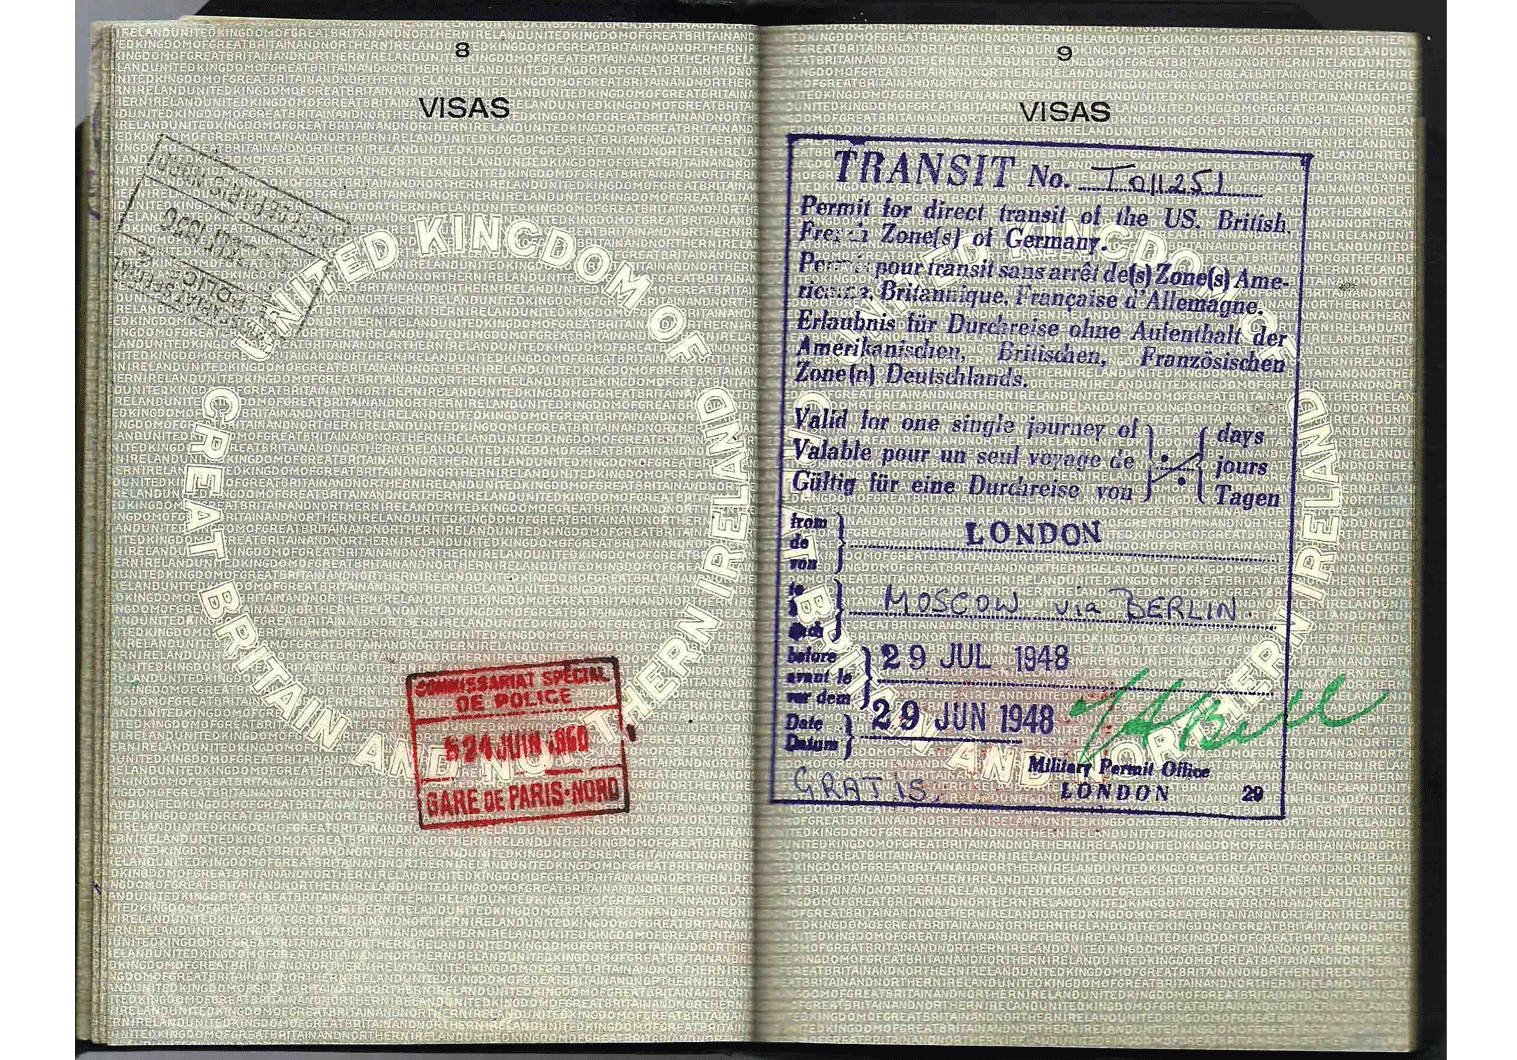 8
VISAS
COMMISSARIAT SPÉCIAL
DE POLICE
GARE DE PARIS-NORD
UNITED KINGDOM OF
GREAT BRITAIN AND NORTHERN IRELAND
9
VISAS
TRANSIT No. T011251
Permit for direct transit of the US. British,
French Zone(s) of Germany.
Permis pour transit sans arrêt de(s) Zone(s) Ame-
ricaine, Britannique, Française d'Allemagne.
Erlaubnis für Durchreise ohne Aufenthalt der
Amerikanischen, Britischen, Französischen
Zone(n) Deutschlands.
Valid for one single journey of } { days
Valable pour un seul voyage de } { jours
Gültig für eine Durchreise von } { Tagen
from
de
von } LONDON
to
à
nach } MOSCOW via BERLIN.
before
avant le
vor dem } 29 JUL 1948
Date
Datum } 29 JUN 1948
Military Permit Office
GRATIS. LONDON 29